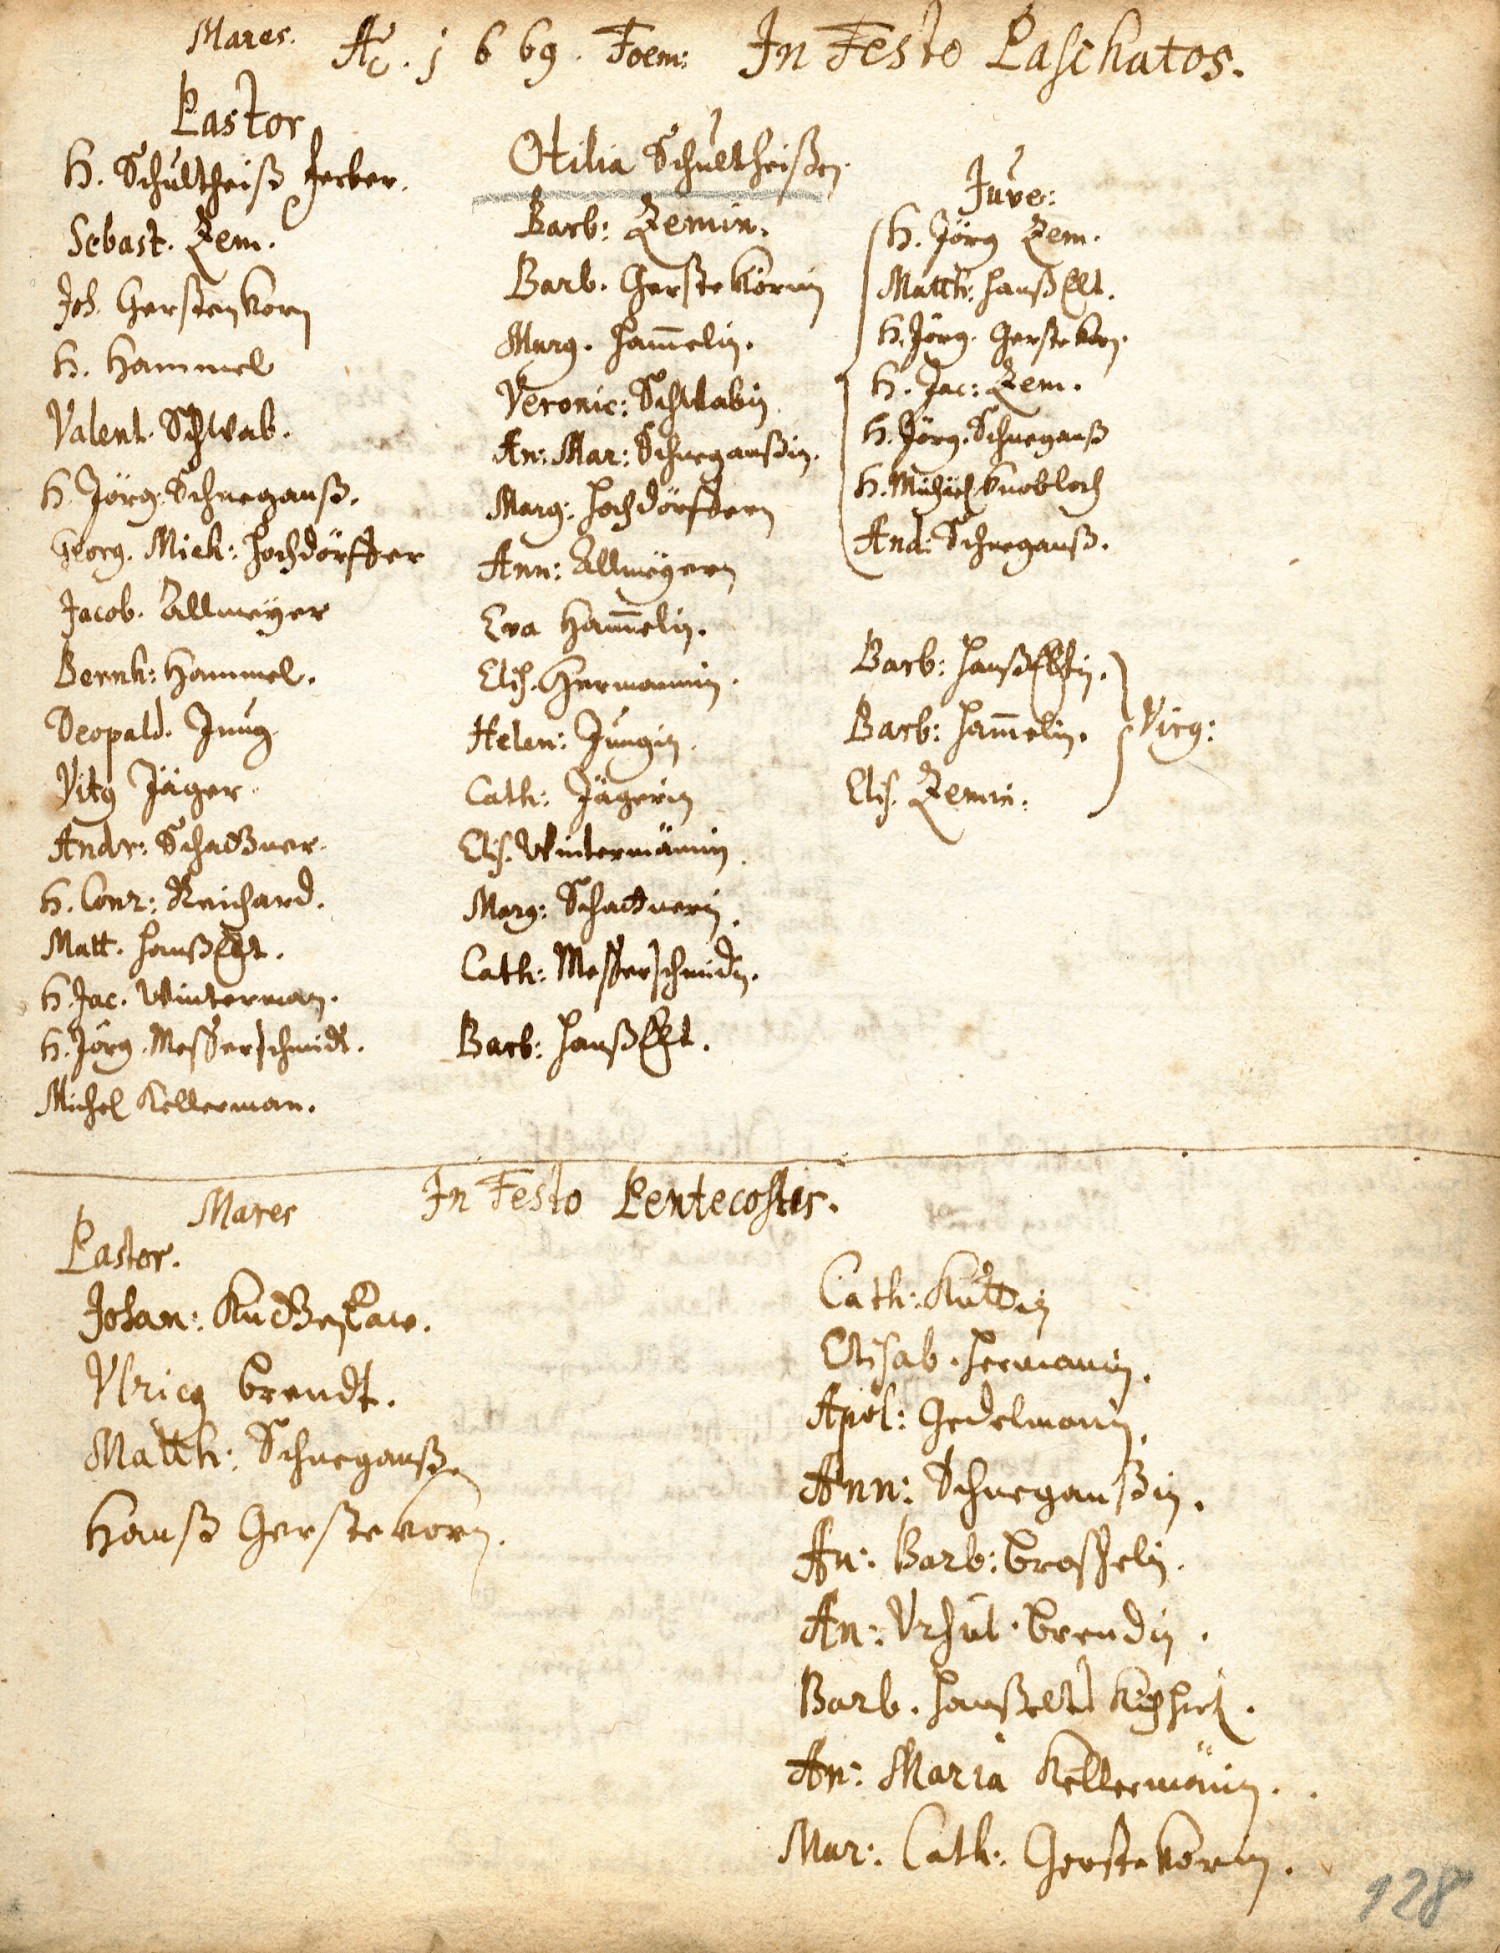 Mares. Aõ. j669. Foem: In Festo Paschatos.
Pastor
H. Schultheiß Ferber.
Sebast. Zem.
Joh. Gerstenkorn
H. Hammel
Valent. Schwab.
H. Jörg. Schneganß.
Georg. Mich: Hochdörffer
Jacob. Allmeyer
Bernh: Hammel.
Deopald. Jung
Vitg Jäger
Andr: Schaffner
H. Conr: Reichard.
Matt. Hanßelt.
H. Jac. Winterman.
H. Jörg. Messerschmidt.
Michel Kellerman.
Otilia Schultheißen.
Barb: Zemin.
Barb. Gerstekörnin
Marg. Ham̄elin.
Veronic: Schwabin
An: Mar: Schneganßin.
Marg: Hochdörffern
Ann: Allmeyern
Eva Ham̄elin.
Elis. Hermannin.
Helen: Jungin.
Cath: Jägerin
Elis. Wintermännin
Marg: Schaffnerin.
Cath: Messerschmidin.
Barb: Hanßelt.
Juve:
H. Jörg Zem.
Matth: Hanßelt.
H. Jörg. Gerstekorn.
H. Jac: Zem.
H. Jörg. Schneganß
H. Michäel Knobloch
And: Schneganß.
Barb: Hanßeltin.
Barb: Ham̄elin. Virg:
Elis. Zemin.
In Festo Pentecostis.
Mares
Pastor.
Johan:
Ulricg Brendt.
Matth: Schneganß.
Hanß Gerstekorn.
Cath:
Elisab. Hermanin.
Apol: Gedelmanin.
Ann: Schneganßin.
An: Barb: Brosselin.
An: Ursul. Brendin.
Barb. Hanßelts
An: Maria Kellermänin.
Mar: Cath: Gerstekörnin.
128